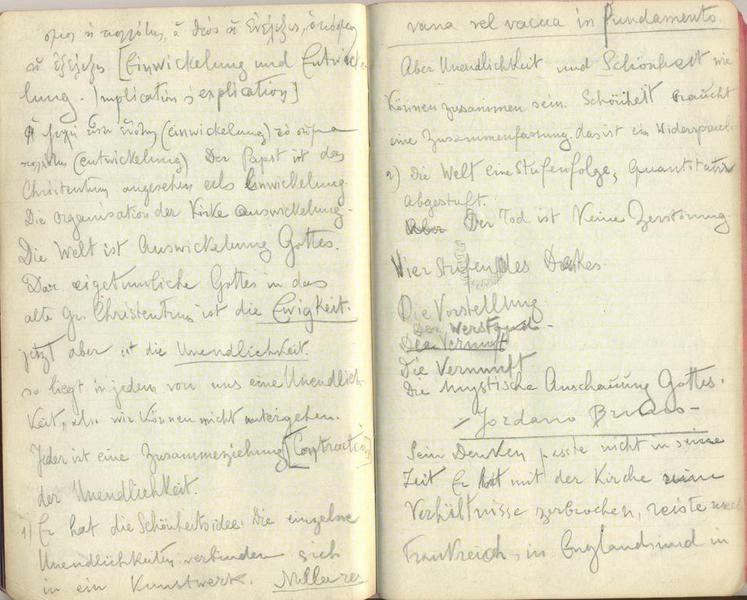 [Einwickelung und Entwicke-
lung. Implicatin s explication]
(einwickelung)
(entwickelung) Der Papst ist das
Christentum angesehen als Einwickelung.
Die organisation der Kirke Auswickelung.
Die Welt ist Auswickelung Gottes.
Das eigetumliche Gottes in das
alte Gr. Christentum ist die Ewigkeit.
jetzt aber ist die Unendlichkeit.
so liegt in jedem von uns eine Unendlich-
keit, als. wir können nicht untergehen.
Jeder ist eine Zusammeziehung [Contraction]
der Unendlichkeit.
1) Er hat die Schönheitsidee. Die einzelne
Unendlichkeiten verbinden sich
in ein Kunstwerk. Null a res
vana vel vacua in fundamento.
Aber Unendlichkeit und Schönheit wie
können zusammen sein. Schönheit braucht
eine Zusammenfassung. das ist ein Widerspruch.
2) Die Welt eine Stufenfolge, quantitativ
abgestuft.
Aber Der Tod ist Keine Zerstörung
Vier Stufen des
Die Vorstellung
Der Verstand.
Die Vernunft
Die Vernunft
Die Mystische Anschauung Gottes.
- Jordano Bruno -
Sein Denken passte nicht in seine
Zeit Er hat mit der Kirche seine
Verhältnisse zerbrochen, reiste nach
Frankreich, in England und in